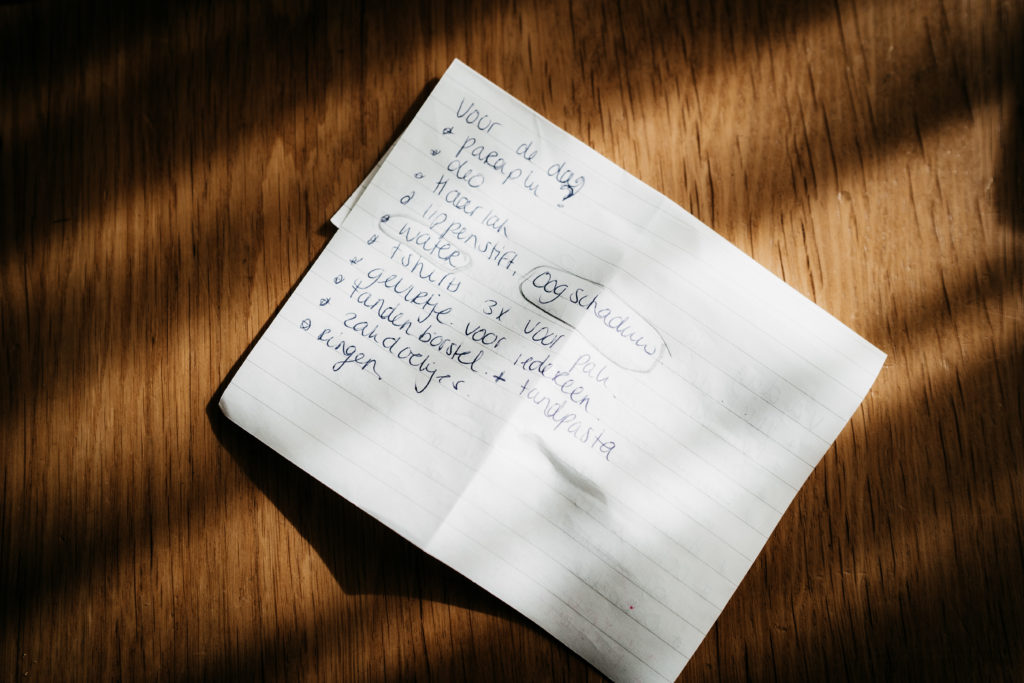 Voor de dag
paraplu
deo
Haarlak
lippenstift, oogschaduw
water
tshirts 3x voor pak.
geurtje voor iedereen.
tandenborstel. + tandpasta
zakdoekjes.
Ringen.